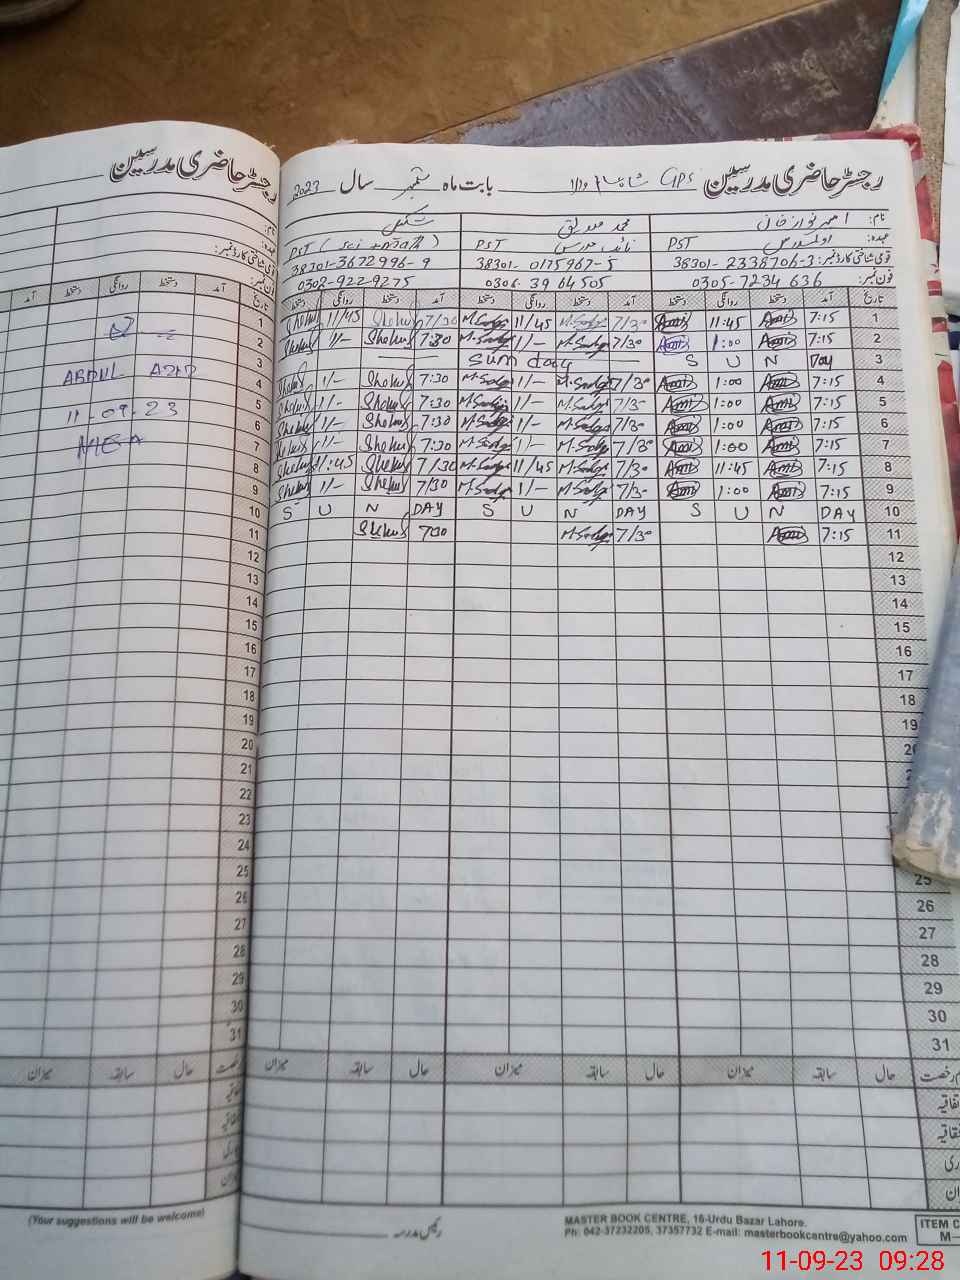 رجسٹر حاضری مدرسین
رجسٹر حاضری مدرسین GPS بابت ماہ ستمبر سال 2023
نام: احمد نواز خان محمد صدیق شکیل
عہدہ: PST نائب مدرس PST PST (Sci + Math)
قومی شناختی کارڈ نمبر: 38301-2338706-3 38301-0175967-5 38301-3672996-9
فون نمبر: 0305-7234636 0306 39 64 505 0302-922-9275
تاریخ آمد دستخط روانگی دستخط آمد دستخط روانگی دستخط آمد دستخط روانگی دستخط
1 7:15 11:45 7/30 M.Sadiq 11/45 7/30 11/45
2 7:15 1:00 7/30 M.Sadiq 1/- 7:30 1/-
3 S U N Day Sunday
4 7:15 1:00 7/30 M.Sadiq 1/- 7:30 1/-
5 7:15 1:00 7/30 M.Sadiq 1/- 7:30 1/-
6 7:15 1:00 7/30 M.Sadiq 1/- 7:30 1/-
7 7:15 1:00 7/30 M.Sadiq 1/- 7:30 1/-
8 7:15 11:45 7/30 M.Sadiq 11/45 7/30 11:45
9 7:15 1:00 7/30 M.Sadiq 1/- 7/30 1/-
10 S U N DAY S U N DAY S U N DAY
11 7:15 7/30 M.Sadiq 7:30
12
13
14
15
16
17
18
19
20
25
26
27
28
29
30
31
رخصت حال سابقہ میزان حال سابقہ میزان حال سابقہ میزان
رئیس مدرسہ
MASTER BOOK CENTRE, 16-Urdu Bazar Lahore.
Ph: 042-37232205, 37357732 E-mail: masterbookcentre@yahoo.com
ITEM C
M-
نام:
عہدہ:
قومی شناختی کارڈ نمبر:
فون نمبر:
تاریخ آمد دستخط روانگی دستخط آمد
1
2
3
4
5
6
7
8
9
10
11
12
13
14
15
16
17
18
19
20
21
22
23
24
25
26
27
28
29
30
31
ABDUL AZIZ
11-09-23
حال سابقہ میزان
(Your suggestions will be welcome)
11-09-23 09:28